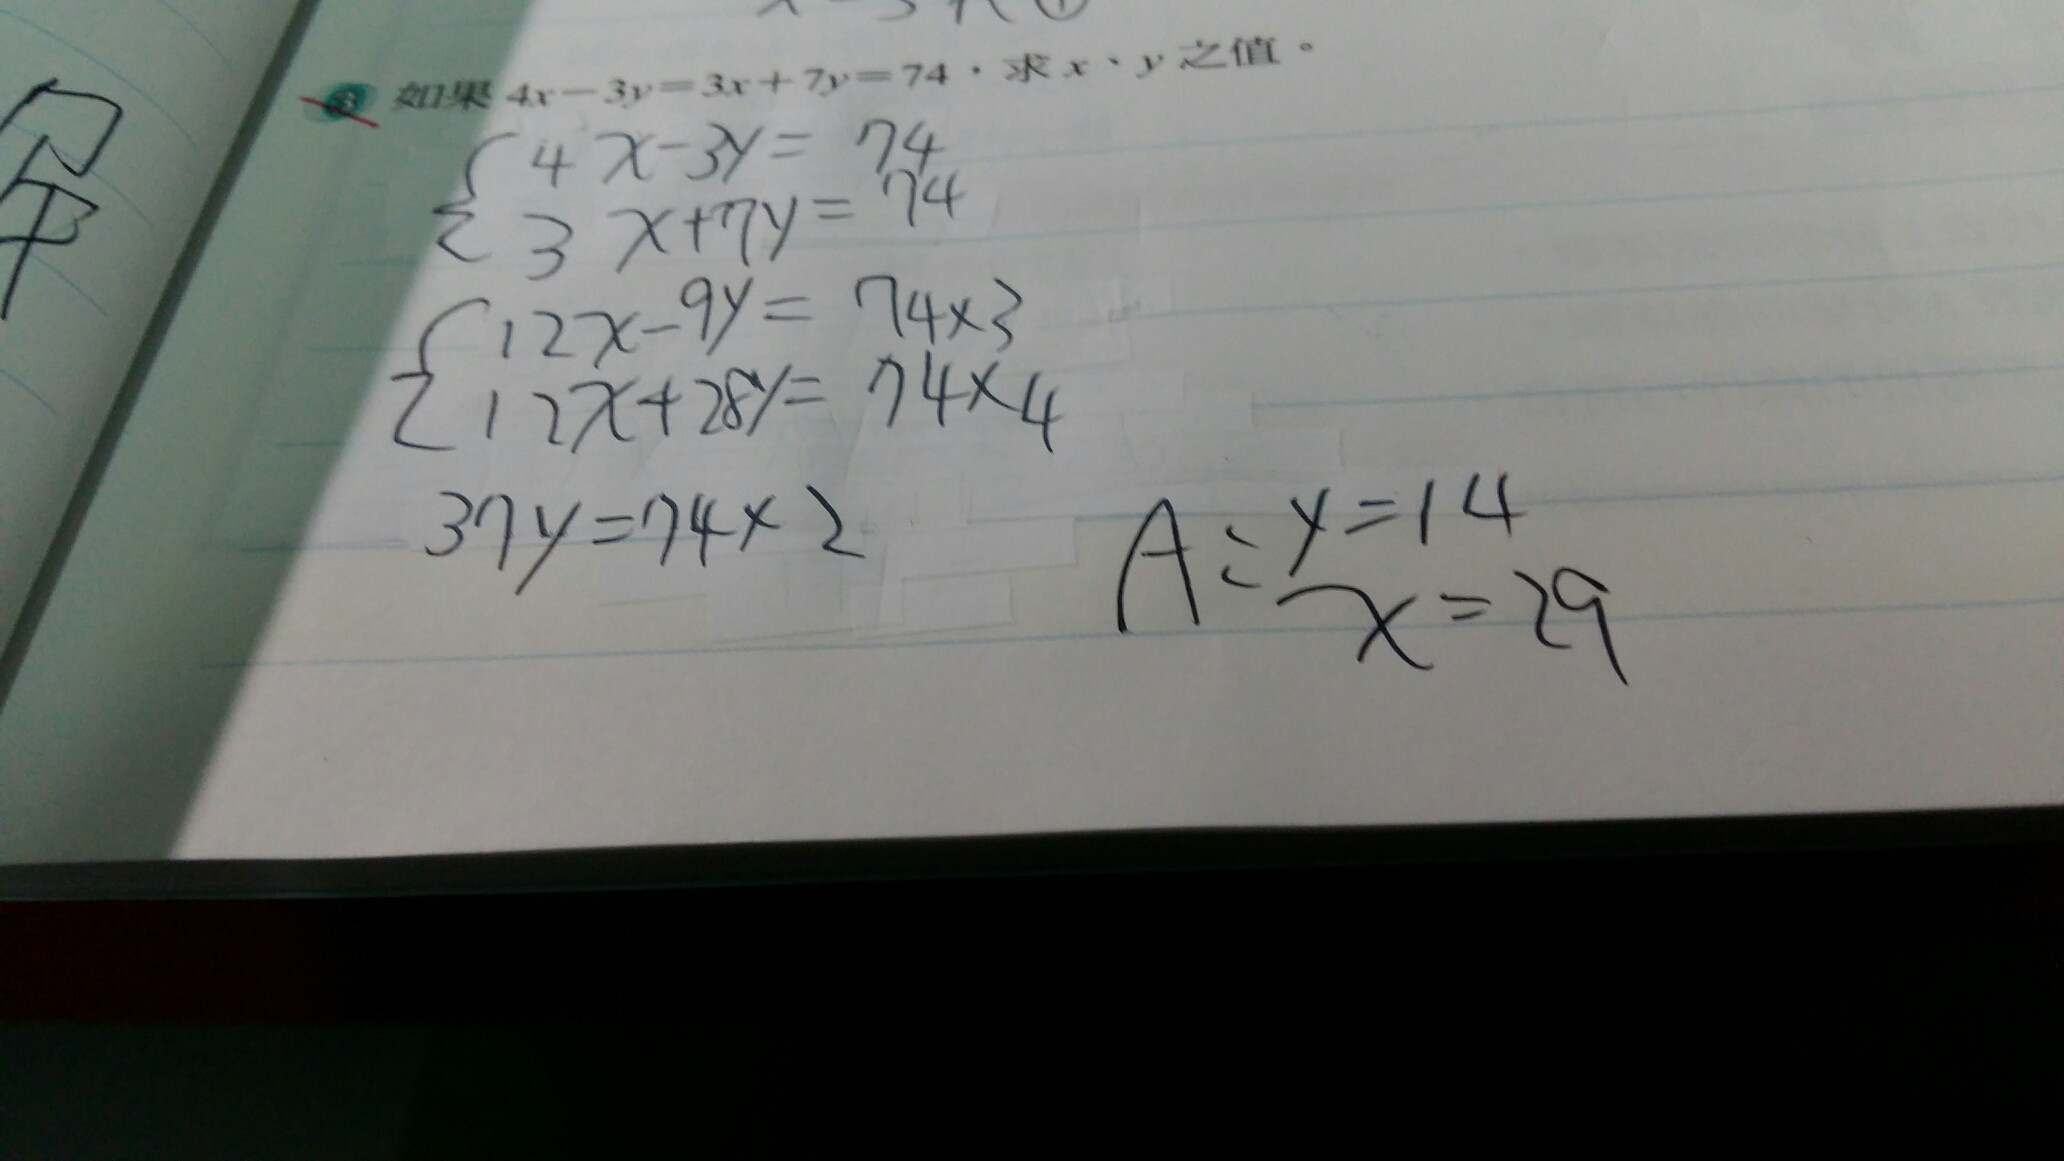 如果 4x－3y＝3x＋7y＝74，求 x、y 之值。
4x-3y=74
3x+7y=74
12x-9y=74×3
12x+28y=74×4
37y=74×2
A：y=14
x=29